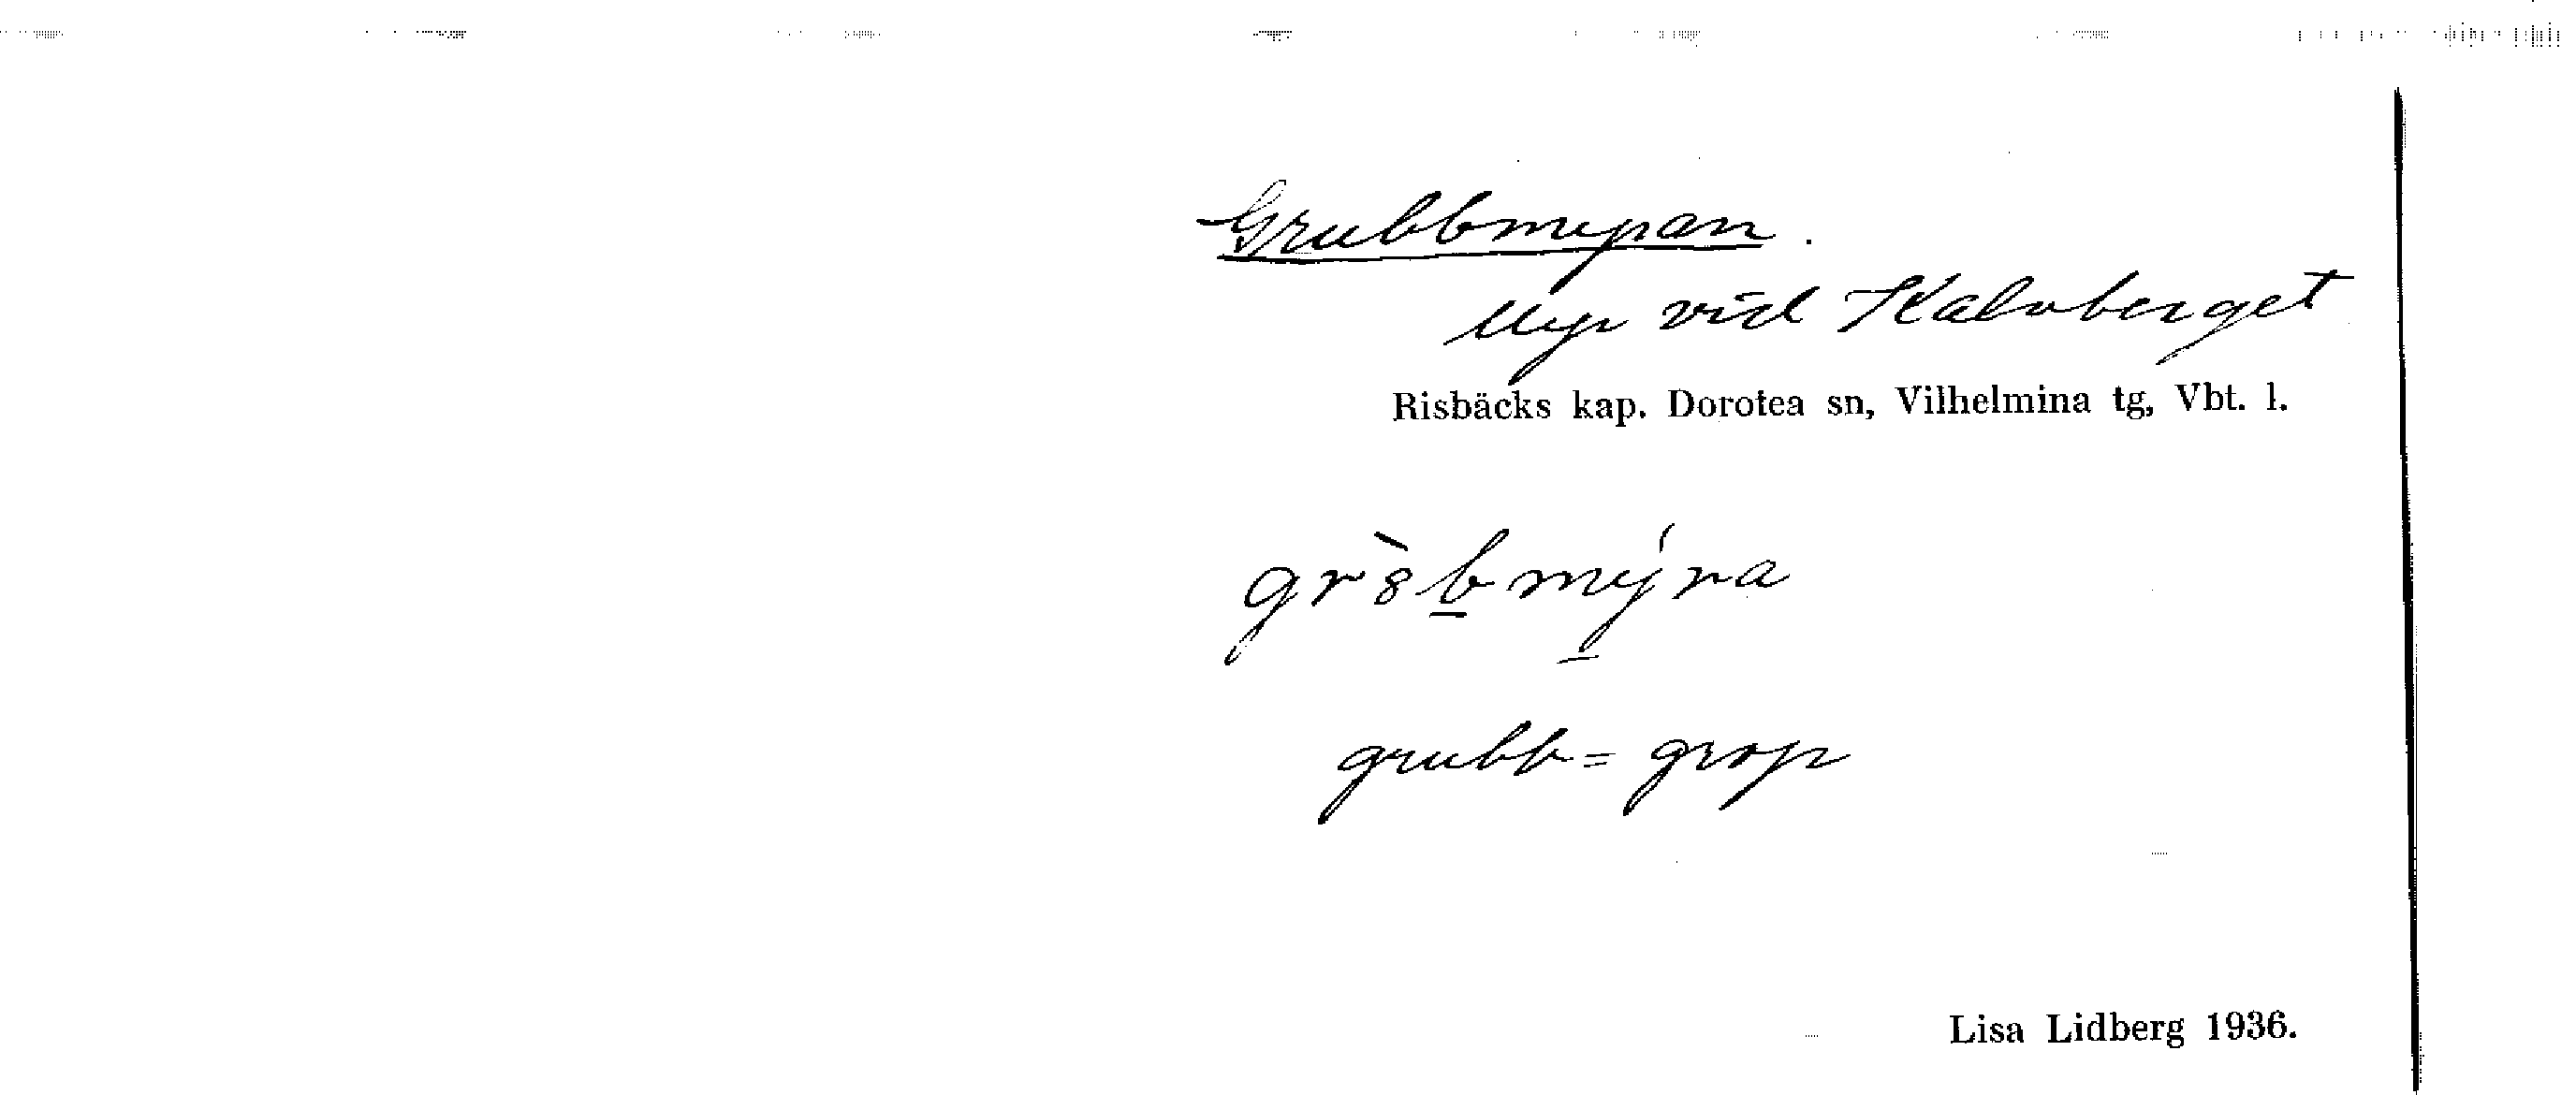 Grubbmyran.
Myr vid Kalvberget
Risbäcks kap. Dorotea sn, Vilhelmina tg, Vbt. l.
gr8̀b̲mý̲ra
grubb = grop
Lisa Lidberg 1936.